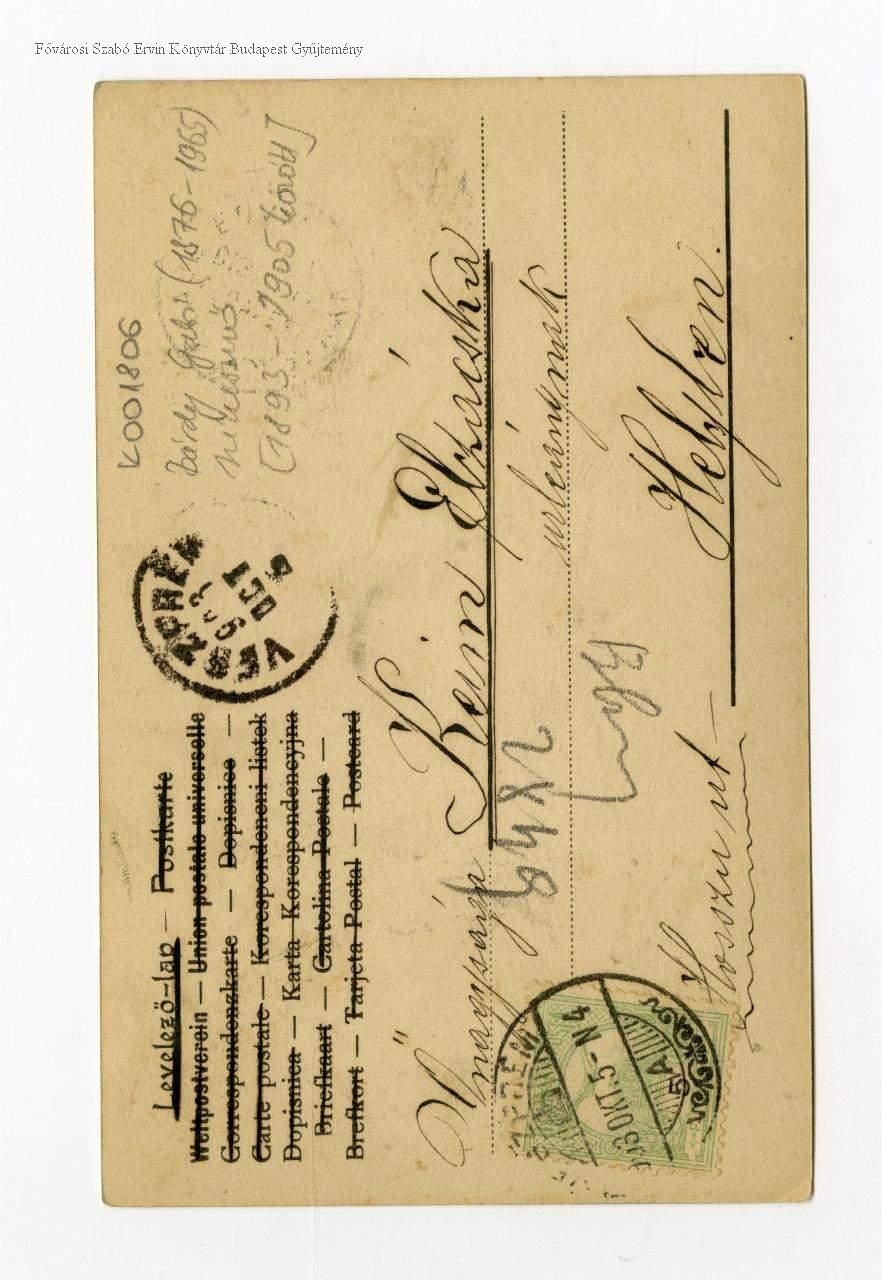 Fővárosi Szabó Ervin Könyvtár Budapest Gyűjtemény
K001806
Bárdy Gabi (1876-1965)
[1893-1905 között]
Levelező-lap — Postkarte
Weltpostverein — Union postale universelle
Correspondenzkarte — Dopisnice —
Carte postale — Korespondencni listek
Dopisnica — Karta Korespondencyjna
Briefkaart — Cartolina Postale —
Brefkort — Tarjeta Postal — Postcard
VESZPRÉM
OCT
Őnagysága
Keim Elzucska
urleánynak
Helyben.
Hosszu ut
VESZPRÉM
OKT. 5-N4
A